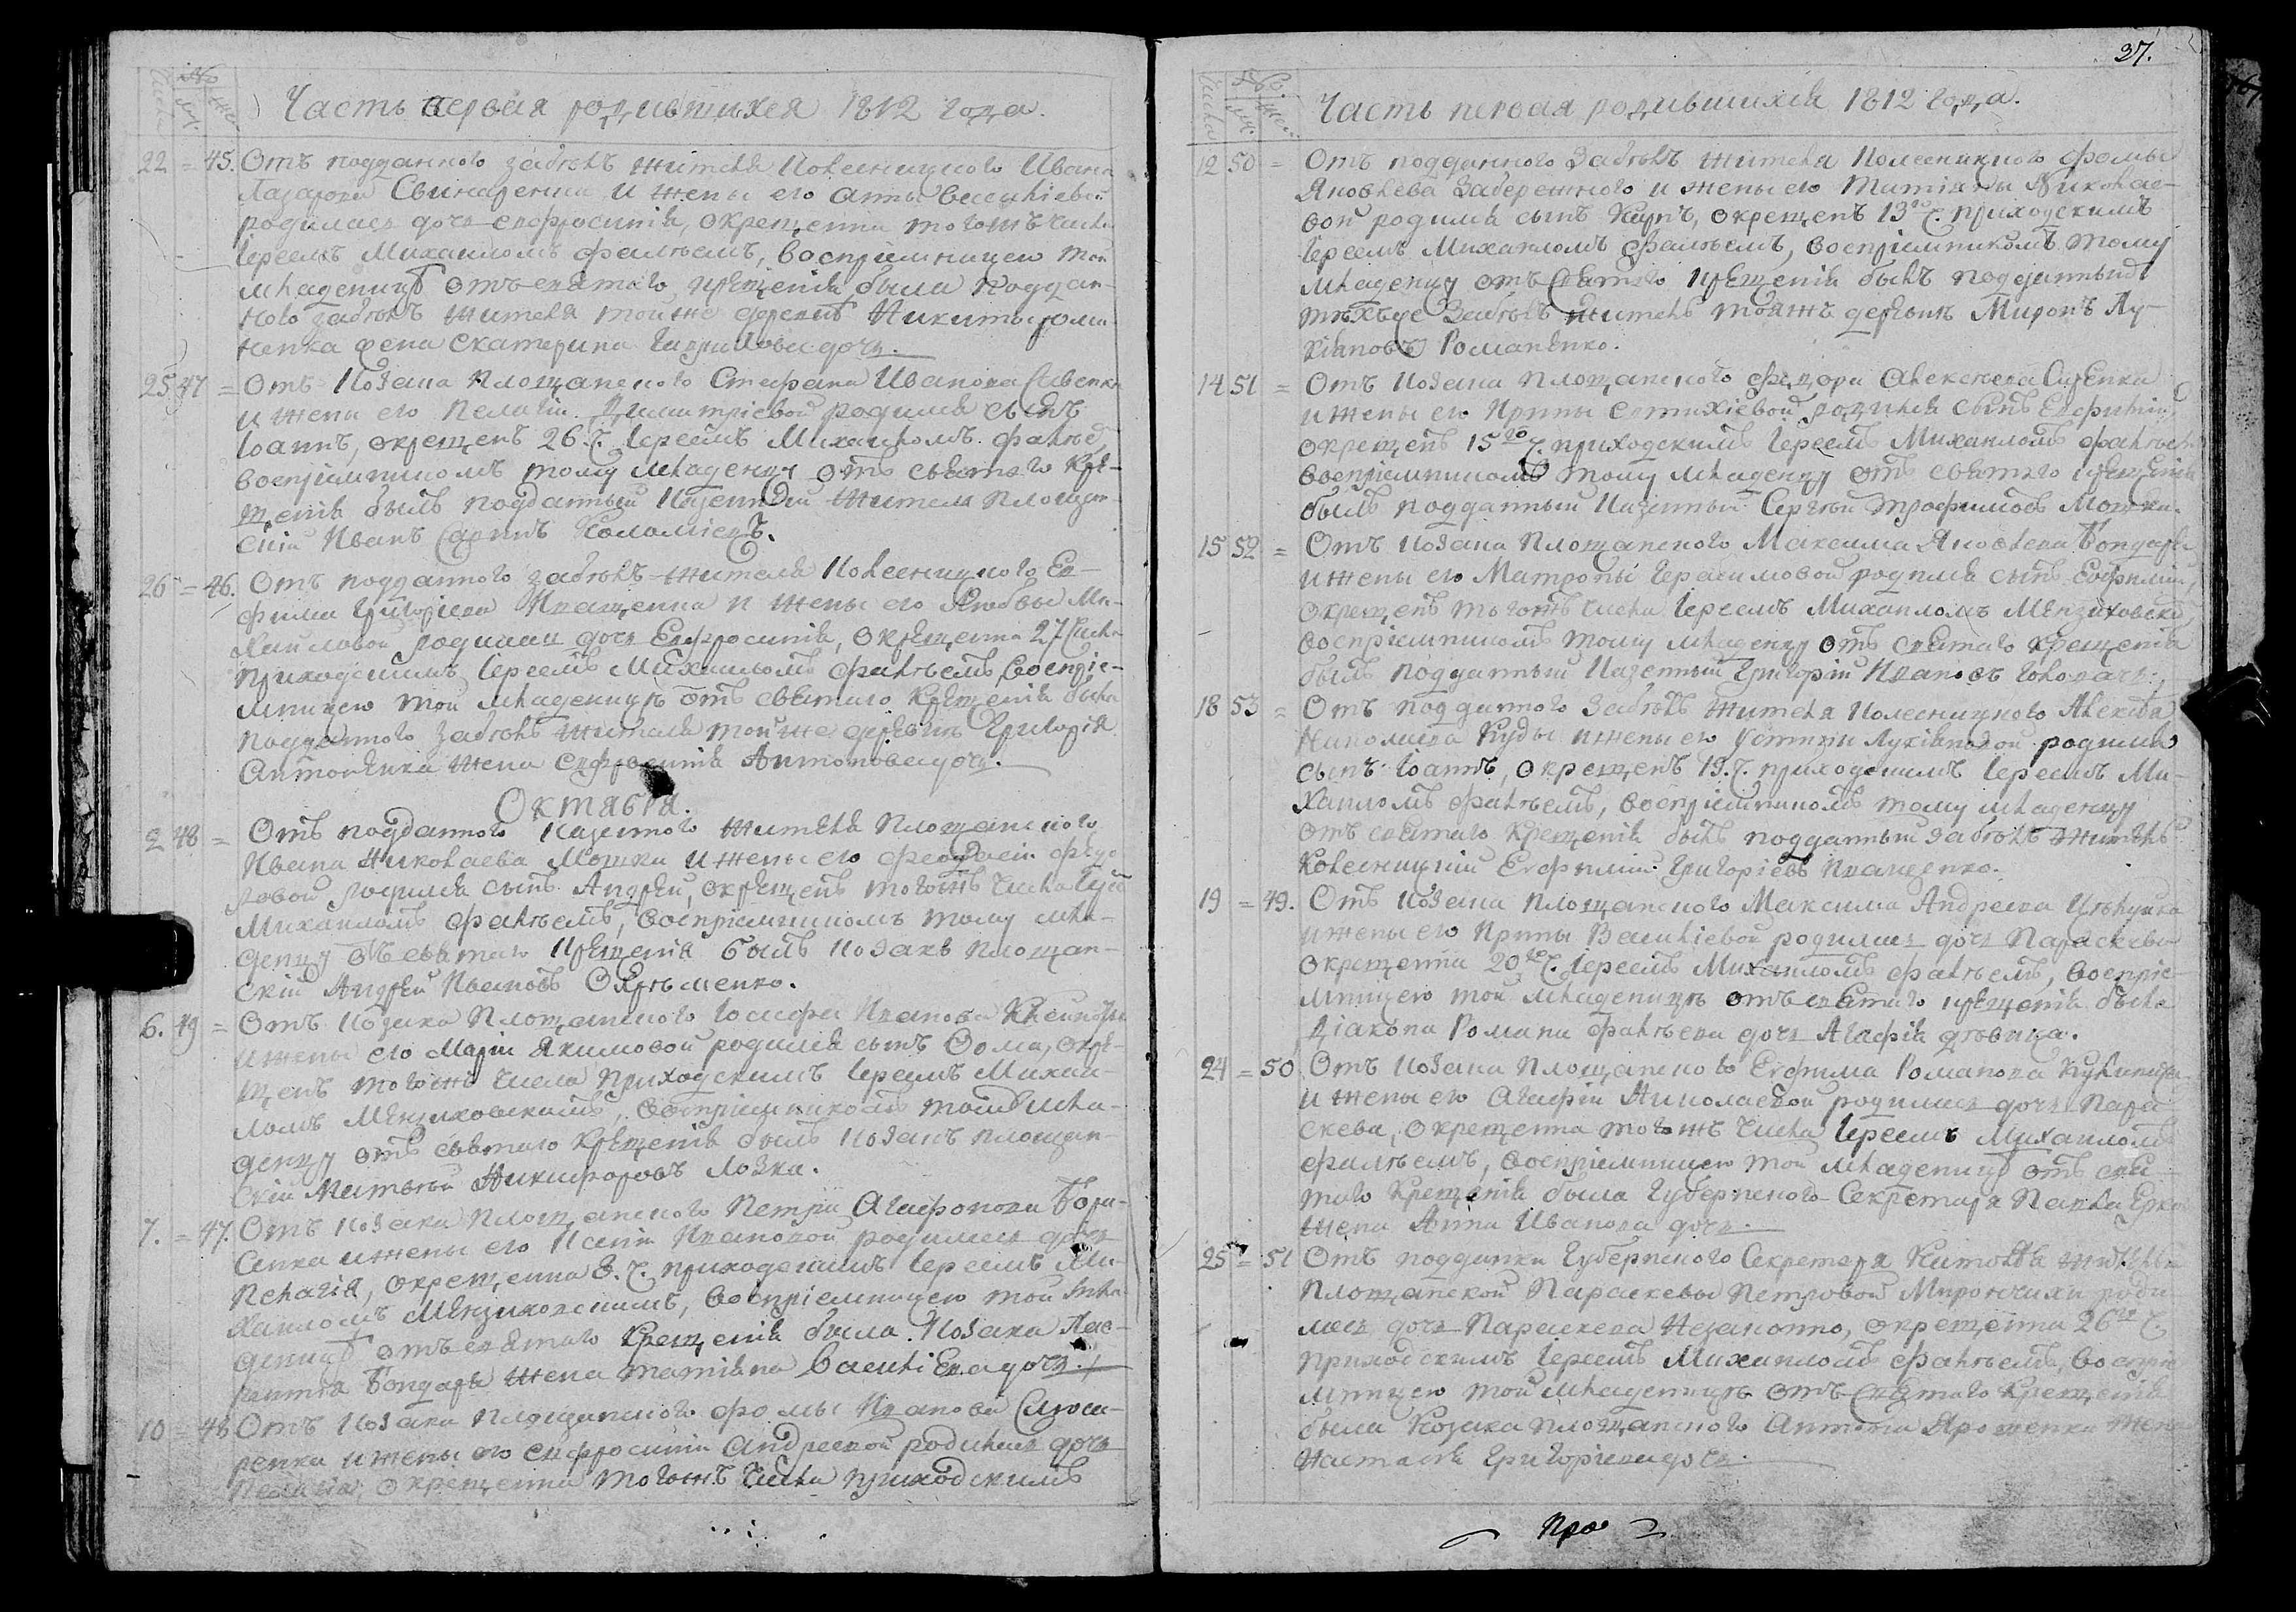 Часть первая родившихся 1812 года.
22 = 45. Отъ подданного жителя Ивана
Лазарова и жены его Анны Василіевой
родилась дочь Евфросинія, окрещенна тогожъ числа
Іереемъ Михаиломъ Фалѣемъ, воспріемницею той
младеницѣ отъ святаго крещенія была поддан-
ного жителя той же деревнѣ Никиты Рома-
ненка жена Екатерина Гаврилова дочь.
25 47 = Отъ козака Площанского Стефана Иванова Савенка
и жены его Пелагіи Димитріевой родился сынъ
Іоаннъ, окрещенъ 26. Ч. Іереемъ Михаиломъ Фалѣемъ,
воспріемникомъ тому младенцу отъ святаго кре-
щенія былъ подданный казенный житель Площан-
скій Иванъ Коломіецъ.
26 = 46. Отъ подданного жителя Ев-
фима Григоріева Иващенка и жены его Любвы Ми-
хайловой родилась дочь Евфросинія, окрещенна 27 числа
приходскимъ Іереемъ Михаиломъ Фалѣемъ, воспріе-
мницею той младеницѣ отъ святаго крещенія была
подданного жителя той же деревнѣ Григорія
Антоненка жена Евфросинія Антонова дочь.
Октября.
2 48 = Отъ подданного казенного жителя Площанского
Ивана Николаева Мошки и жены его Феодосіи Федо-
ровой родился сынъ Андрей, окрещенъ тогожъ числа Іере
Михаиломъ Фалѣемъ, воспріемникомъ тому мла-
денцу отъ святаго крещенія былъ козакъ Площан-
скій Андрей Ивановъ
6. 49 = Отъ козака Площанского Іосифа Иванова
и жены его Маріи Якимовой родился сынъ Фома, окре-
щенъ тогожъ числа приходскимъ Іереемъ Михаи-
ломъ Мензиховскимъ, воспріемникомъ тому мла-
денцу отъ святаго крещенія былъ козакъ Площан-
скій Матвѣй Никифоровъ Лозка.
7. = 47. Отъ козака Площанского Петра Агафонова Бори-
сенка и жены его Ксеніи Ивановой родилась дочь
Пелагія, окрещенна 8. Ч. приходскимъ Іереемъ Ми-
хаиломъ Мензиховскимъ, воспріемницею той мла-
деницѣ отъ святаго крещенія была козака Лав-
рентія Бондаря жена Татіана Василіева дочь.
10 = 48 Отъ козака Площанского Фомы Иванова
ренка и жены его Евфросиніи Андреевой родилась дочь
Пелагія, окрещенна тогожъ числа приходскимъ
37.
Часть первая родившихся 1812 года.
12 50 = Отъ подданного жителя Фомы
Яковлева Забережного и жены его Татіаны Николае-
вой родился сынъ Карпъ, окрещенъ 13го Ч. приходскимъ
Іереемъ Михаиломъ Фалѣемъ, воспріемникомъ тому
младенцу отъ святаго крещенія былъ подданный
тѣхъже житель тояжъ деревнѣ Миронъ Лу-
кіановъ Романенко.
14 51 = Отъ козака Площанского Федора Алексѣева
и жены его Ирины Евтихіевой родился сынъ Евфимій,
окрещенъ 15го Ч. приходскимъ Іереемъ Михаиломъ Фалѣемъ
воспріемникомъ тому младенцу отъ святаго крещенія
былъ подданный казенный Сергѣй Трофимовъ Мошка.
15 52 = Отъ козака Площанского Максима Яковлева Бондаря
и жены его Матроны Герасимовой родился сынъ Евфимій,
окрещенъ тогожъ числа Іереемъ Михаиломъ Мензиховски
воспріемникомъ тому младенцу отъ святаго крещенія
былъ подданный казенный Григорій Ивановъ
18 53 = Отъ подданного жителя Алексѣя
Николаева Кубы и жены его Устиніи Лукіановой родился
сынъ Іоаннъ, окрещенъ 19. Ч. приходскимъ Іереемъ Ми-
хаиломъ Фалѣемъ, воспріемникомъ тому младенцу
отъ святаго крещенія былъ подданный житель
Евфимій Григоріевъ Иващенко.
19 = 49. Отъ козака Площанского Максима Андреева
и жены его Ирины Василіевой родилась дочь Параскева
окрещенна 20го Ч. Іереемъ Михаиломъ Фалѣемъ, воспріе-
мницею той младеницѣ отъ святаго крещенія была
Діакона Романа Фалѣева дочь Агафія дѣвица.
24 = 50 Отъ козака Площанского Евфима Романова
и жены его Агафіи Николаевой родилась дочь Пара-
скева, окрещенна тогожъ числа Іереемъ Михаиломъ
Фалѣемъ, воспріемницею той младеницѣ отъ свя-
таго крещенія была Губернского Секретаря Павла
жена Анна Иванова дочь.
25 = 51 Отъ подданки Губернского Секретаря
Площанской Параскевы Петровой Мирончихи роди-
лась дочь Параскева незаконно, окрещенна 26го Ч.
приходскимъ Іереемъ Михаиломъ Фалѣемъ, воспріе
мницею той младеницѣ отъ святаго крещенія
была козака Площанского Антона Ярошенка жена
Настасія Григоріева дочь.